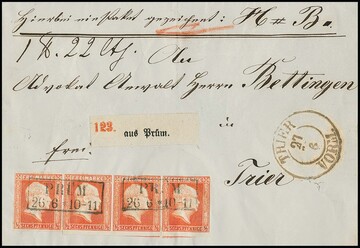 Hierbei ein Paket gezeichnet: H # B.
1 ℔. 22 Lth. An
Advokat Anwalt Herrn Bettingen
123. aus Prüm.
in
frei
Trier
TRIER
27
6
PRÜM
26 6 10-11
PRÜM
26 6 10-11